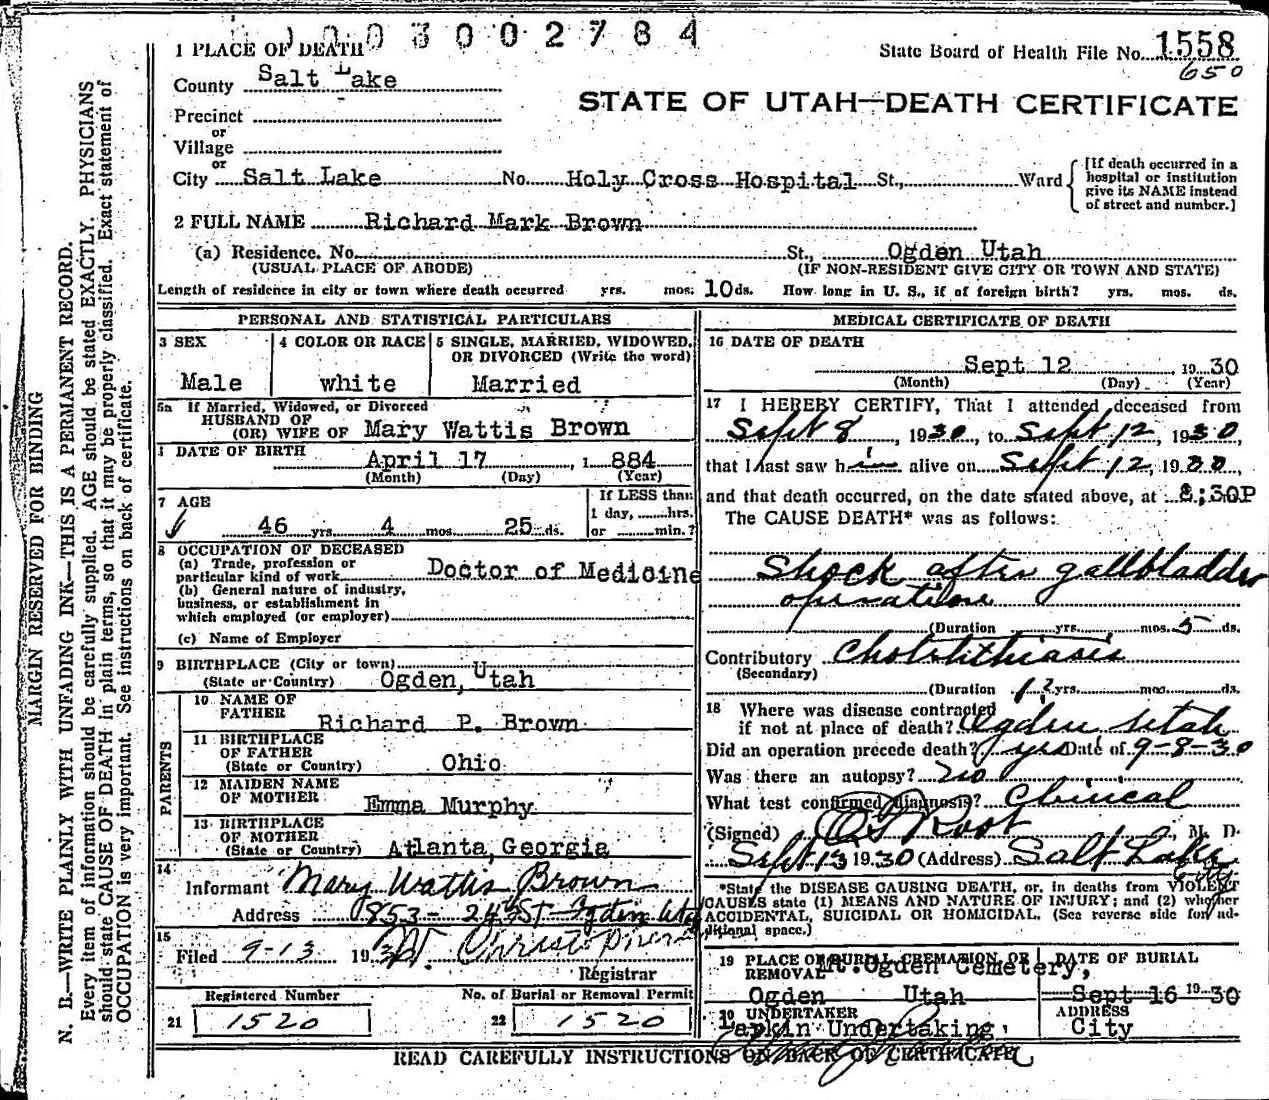 1003002784
1 PLACE OF DEATH
State Board of Health File No. 1558
650
County Salt Lake
STATE OF UTAH—DEATH CERTIFICATE
Precinct
or
Village
or
City Salt Lake No. Holy Cross Hospital St., Ward
[If death occurred in a hospital or institution give its NAME instead of street and number.]
2 FULL NAME Richard Mark Brown
(a) Residence. No. St., Ogden Utah
(USUAL PLACE OF ABODE) (IF NON-RESIDENT GIVE CITY OR TOWN AND STATE)
Length of residence in city or town where death occurred yrs. mos. 10 ds. How long in U. S., if of foreign birth? yrs. mos. ds.
PERSONAL AND STATISTICAL PARTICULARS
3 SEX
Male
4 COLOR OR RACE
white
5 SINGLE, MARRIED, WIDOWED, OR DIVORCED (Write the word)
Married
5a If Married, Widowed, or Divorced
HUSBAND OF
(OR) WIFE OF Mary Wattis Brown
DATE OF BIRTH April 17, 1884
(Month) (Day) (Year)
7 AGE
46 yrs. 4 mos. 25 ds.
If LESS than
1 day, hrs.
or min.?
8 OCCUPATION OF DECEASED
(a) Trade, profession or
particular kind of work Doctor of Medicine
(b) General nature of industry,
business, or establishment in
which employed (or employer)
(c) Name of Employer
9 BIRTHPLACE (City or town)
(State or Country) Ogden, Utah
PARENTS
10 NAME OF
FATHER Richard P. Brown
11 BIRTHPLACE
OF FATHER
(State or Country) Ohio
12 MAIDEN NAME
OF MOTHER Emma Murphy
13 BIRTHPLACE
OF MOTHER
(State or Country) Atlanta, Georgia
14
Informant Mary Wattis Brown
Address 853 - 24th St - Ogden Utah
15
Filed 9-13 193
Registrar
Registered Number
21 1520
No. of Burial or Removal Permit
22 1520
MEDICAL CERTIFICATE OF DEATH
16 DATE OF DEATH
Sept 12, 1930
(Month) (Day) (Year)
17 I HEREBY CERTIFY, That I attended deceased from
Sept 8, 1930, to Sept 12, 1930,
that I last saw him alive on Sept 12, 1930,
and that death occurred, on the date stated above, at 8;30P
The CAUSE DEATH* was as follows:
Shock after gallbladder
operation
(Duration yrs. mos. 5 ds.
Contributory Cholelithiasis
(Secondary)
(Duration 12 yrs. mos. ds.
18 Where was disease contracted
if not at place of death? Ogden Utah
Did an operation precede death? yes Date of 9-8-30
Was there an autopsy? no
What test confirmed diagnosis? Clinical
(Signed) Root, M. D.
Sept 13 1930 (Address) Salt Lake
City
*State the DISEASE CAUSING DEATH, or, in deaths from VIOLENT
CAUSES state (1) MEANS AND NATURE OF INJURY; and (2) whether
ACCIDENTAL, SUICIDAL OR HOMICIDAL. (See reverse side for ad-
ditional space.)
19 PLACE OF BURIAL, CREMATION, OR
REMOVAL Mt. Ogden Cemetery,
Ogden Utah
DATE OF BURIAL
Sept 16 1930
20 UNDERTAKER
Larkin Undertaking
ADDRESS
City
READ CAREFULLY INSTRUCTIONS ON BACK OF CERTIFICATE
MARGIN RESERVED FOR BINDING
N. B.—WRITE PLAINLY WITH UNFADING INK—THIS IS A PERMANENT RECORD.
Every item of information should be carefully supplied. AGE should be stated EXACTLY. PHYSICIANS
should state CAUSE OF DEATH in plain terms, so that it may be properly classified. Exact statement of
OCCUPATION is very important. See instructions on back of certificate.